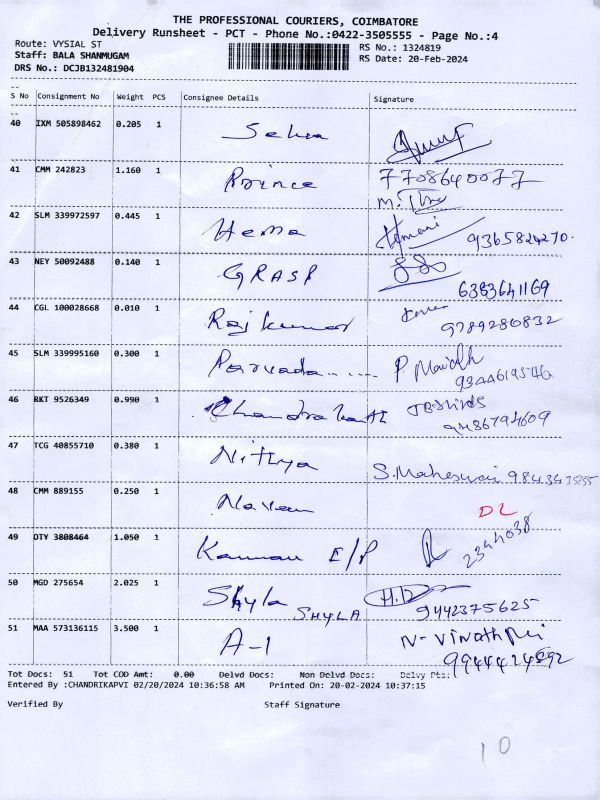 THE PROFESSIONAL COURIERS, COIMBATORE
Delivery Runsheet - PCT - Phone No.:0422-3505555 - Page No.:4
Route: VYSIAL ST RS No.: 1324819
Staff: BALA SHANMUGAM RS Date: 20-Feb-2024
DRS No.: DCJB132481904
S No Consignment No Weight PCS Consignee Details Signature
40 IXM 505898462 0.205 1
41 CMM 242823 1.160 1 Prince 7708640077
42 SLM 339972597 0.445 1 Hema Hemani 9365824270.
43 NEY 50092488 0.140 1 GRASP
6383641169
44 CGL 100028668 0.010 1 Rajkumar
9789280832
45 SLM 339995160 0.300 1 P
9344619546
46 RKT 9526349 0.990 1 Chandrakanth
9486794609
47 TCG 40855710 0.380 1 Nithya S. Maheswari
48 CMM 889155 0.250 1 Naveen DL
49 OTY 3808464 1.050 1 Kannan E/P 2344038
50 MGD 275654 2.025 1 Shyla SHYLA H.D 9442375625
51 MAA 573136115 3.500 1 A-1
9944424592
Tot Docs: 51 Tot COD Amt: 0.00 Delvd Docs: Non Delvd Docs: Delvy Pts:
Entered By :CHANDRIKAPVI 02/20/2024 10:36:58 AM Printed On: 20-02-2024 10:37:15
Verified By Staff Signature
10